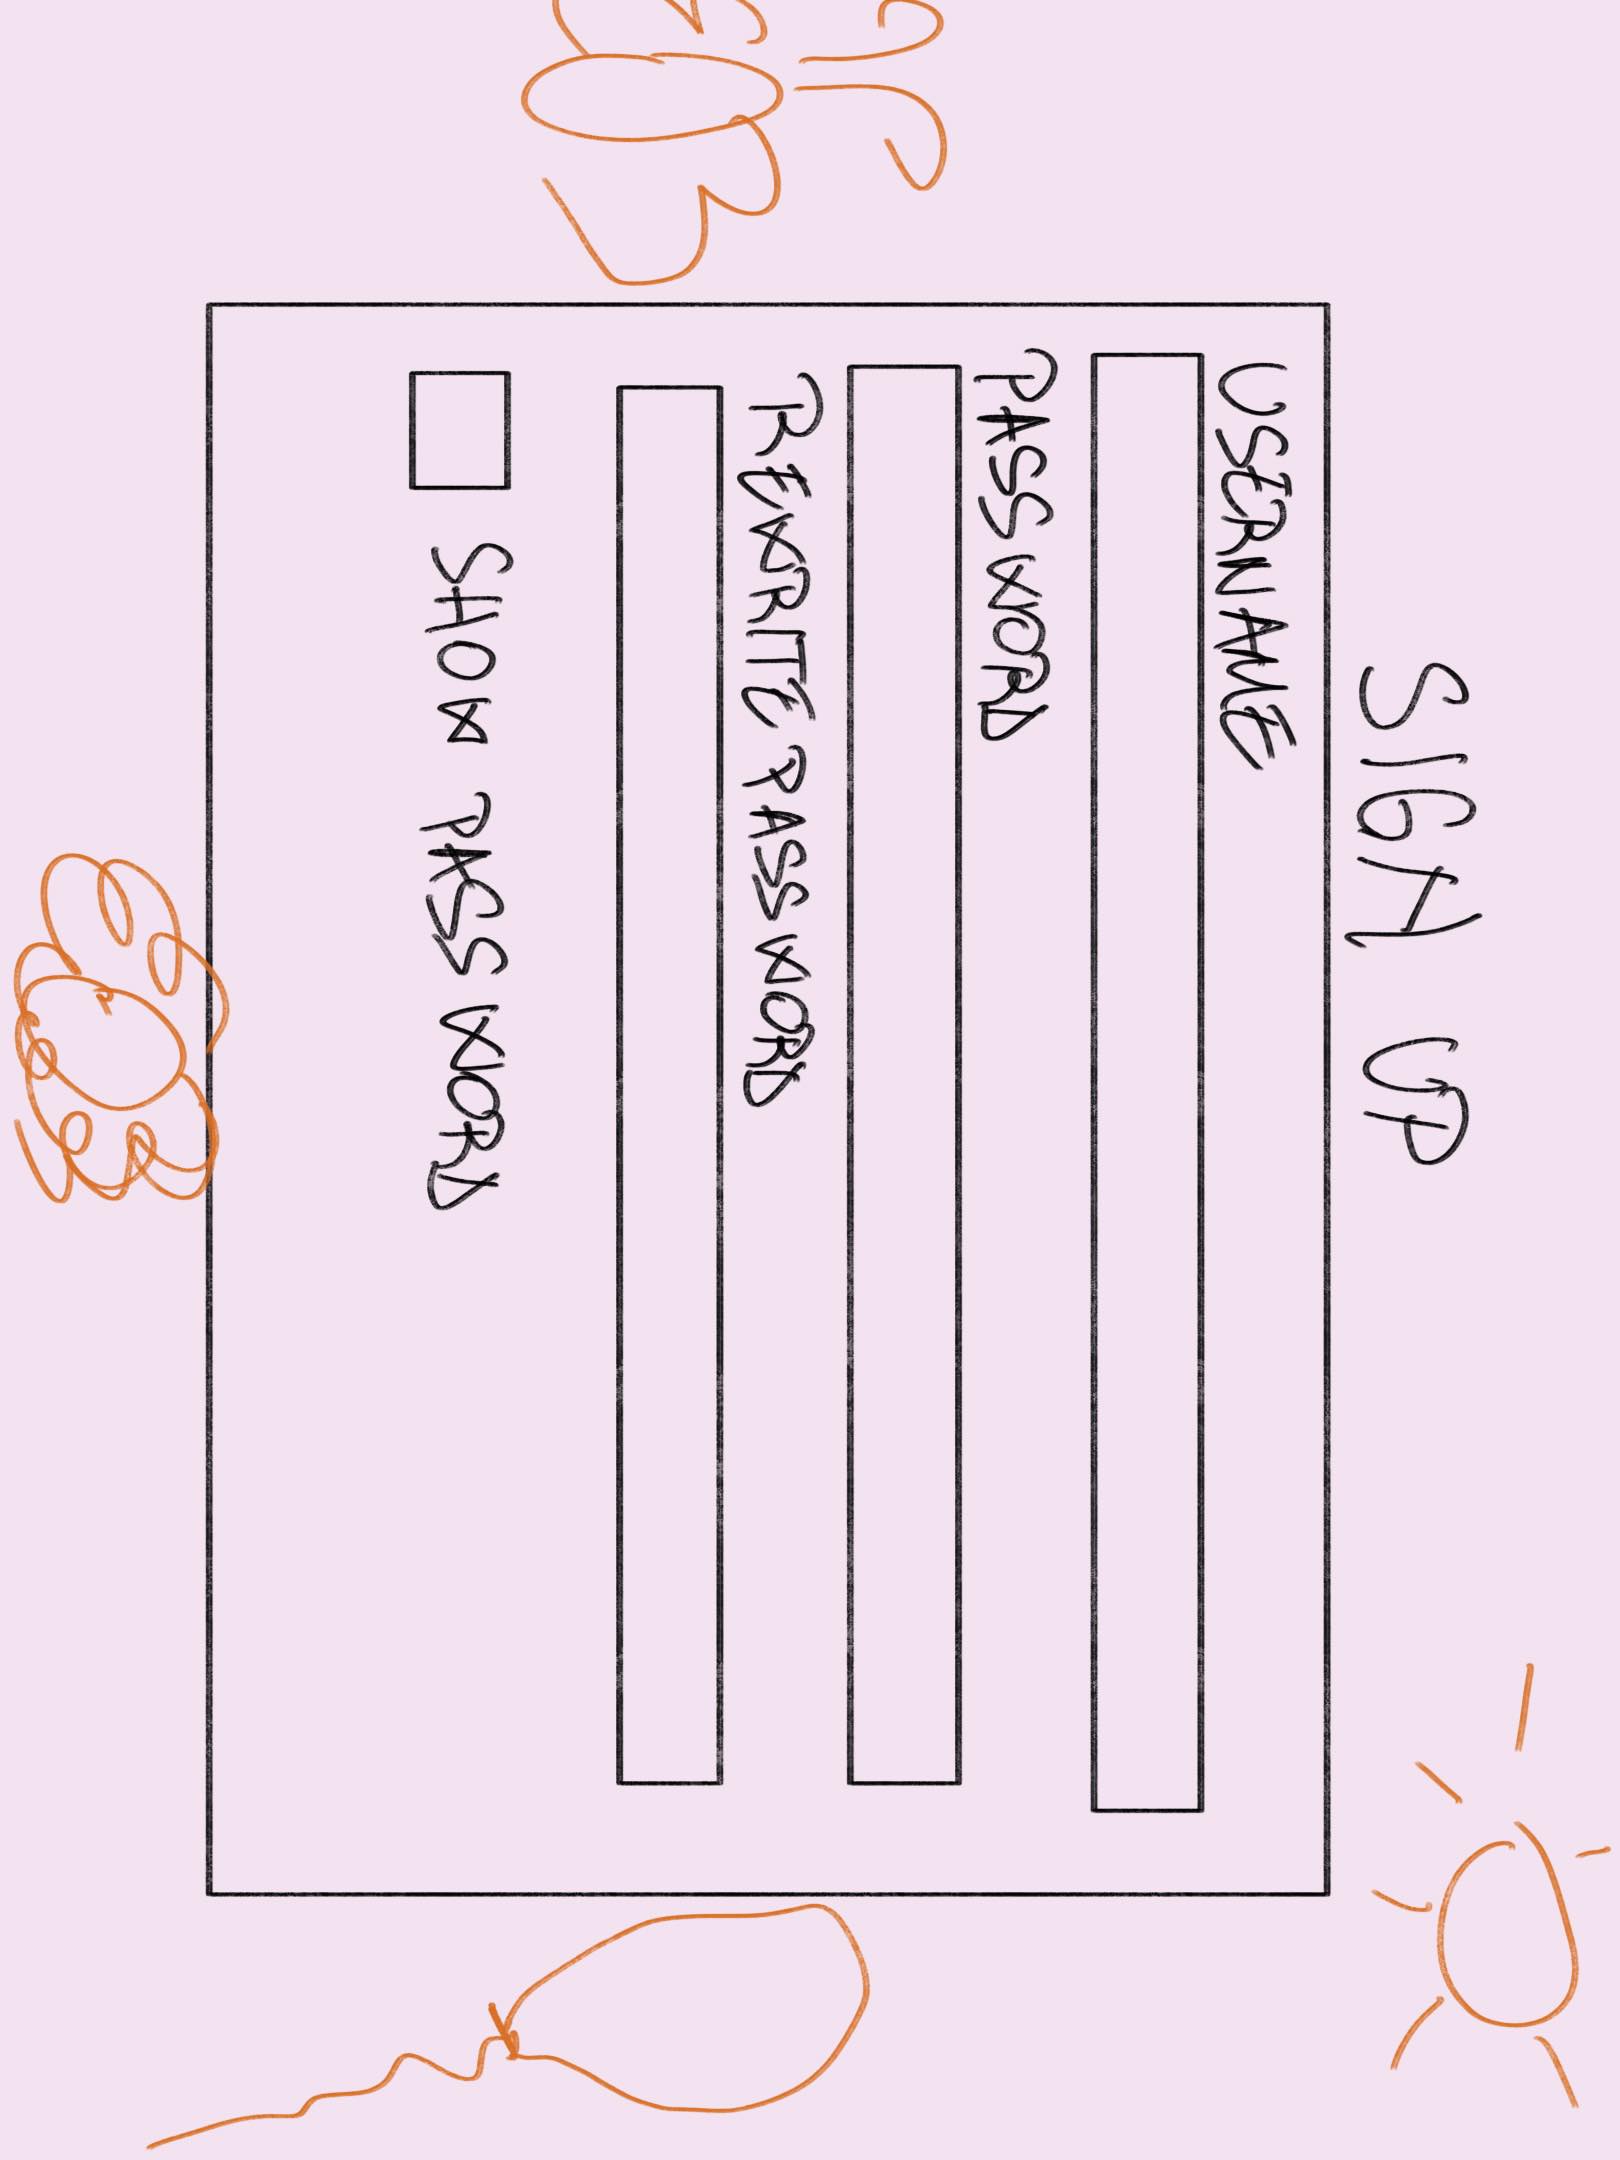 SIGN UP
USERNAME
PASSWORD
REWRITE PASSWORD
SHOW PASSWORD